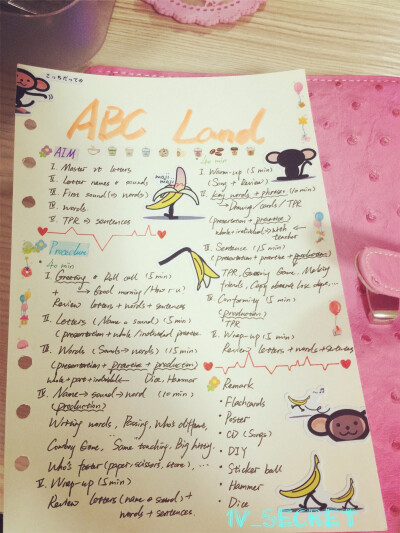 こっちだっての
ABC Land
AIM
I. Master 26 letters
II. Letter names & sounds
III. Fine sound (→ words)
IV. words
V. TPR → sentences
Procedure
40 min
I. Greeting & Roll call (5 min)
→ Good morning / How r u
Review letters + words + sentences
II. Letters (Name & sound) (5 min)
(presentation + whole / individual practice)
III. Words (Sounds → words) (15 min)
(presentation + practice + production)
whole + part + individuals Dice, Hammer
IV. Name → sound → word (10 min)
(production)
Writing words, Passing, Who's different,
Cowboy Game, Same touching, Big hitting,
Who's faster (paper, scissors, stone), ...
V. Wrap-up (5 min)
Review letters (name & sound) +
words + sentences.
moji moji
40 min
I. Warm-up (5 min)
(Song + Review)
II. key words + phrases (10 min)
→ Drawing / cards / TPR
(presentation + practice)
whole + individual → with teacher
III. Sentence (15 min)
(presentation + practice + production)
TPR, Guessing Game, Making
friends, Copy doesn't lose dope, ...
IV. Conformity (5 min)
(production)
TPR
V. Wrap-up (5 min)
Review letters + words + sentences
Remark
• Flashcards
• Poster
• CD (Songs)
• DIY
• Sticker ball
• Hammer
• Dice
IV_SECRET